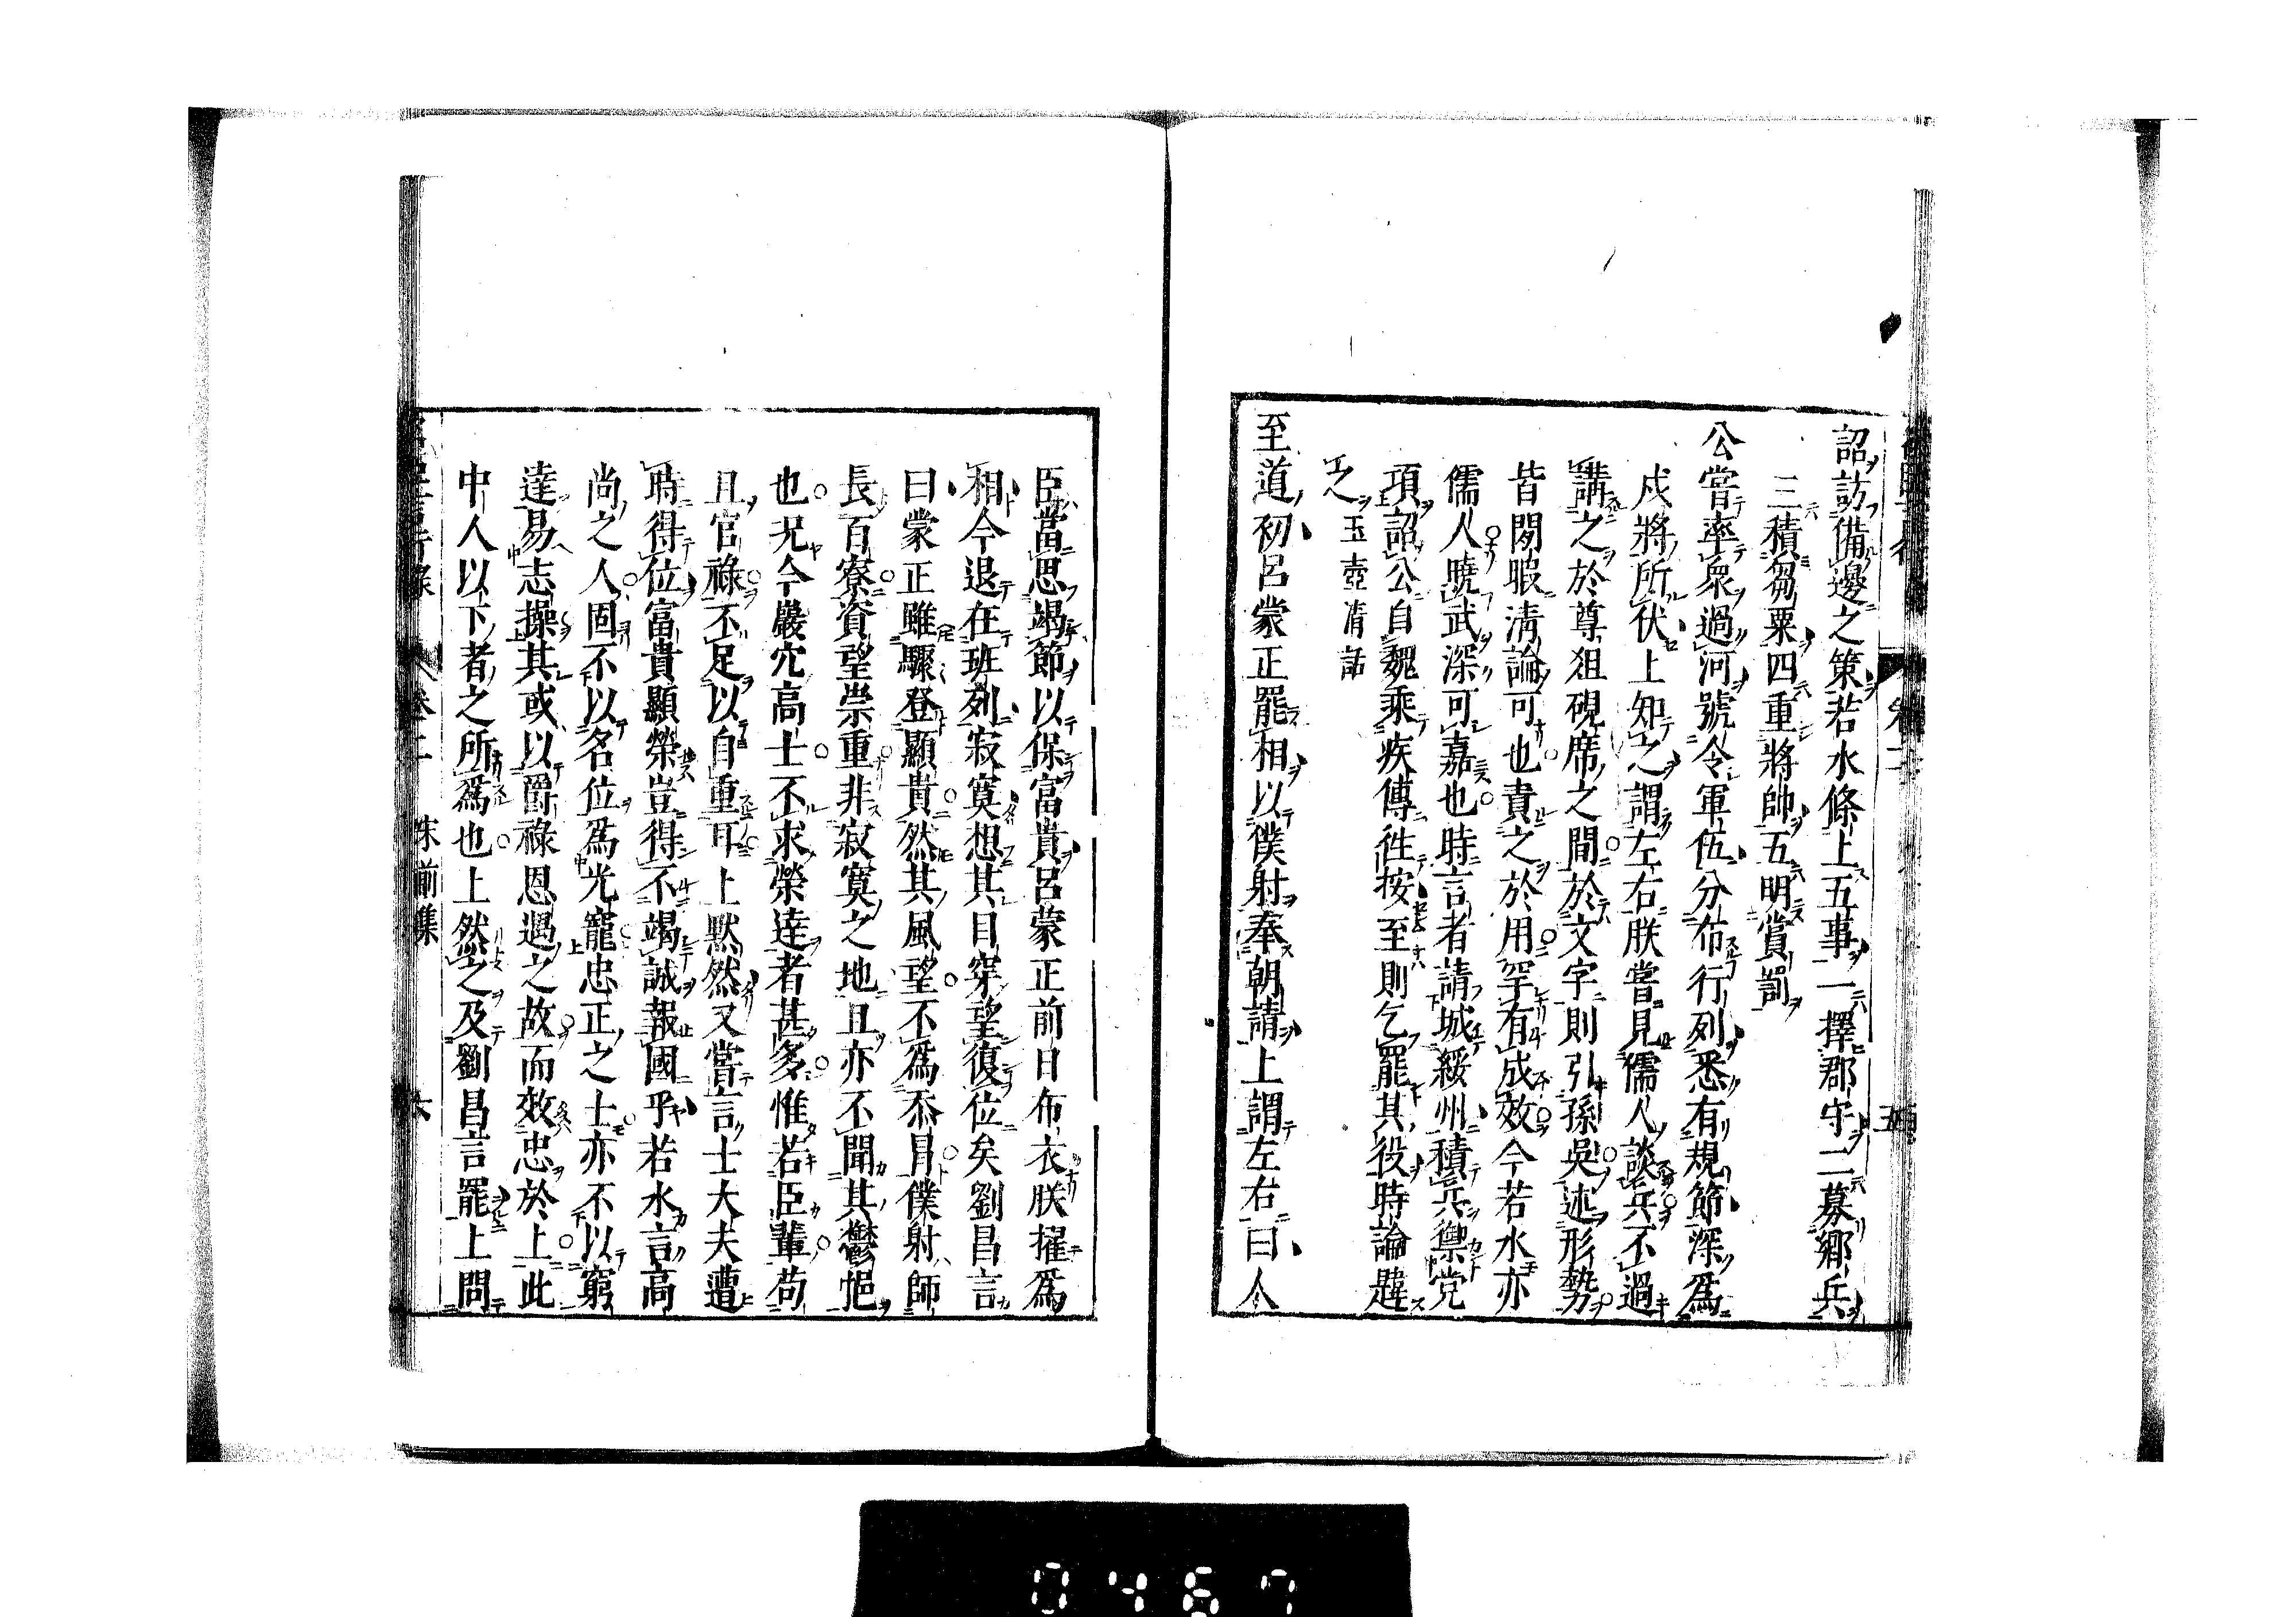 詔訪備邊之策若水條上五事一擇郡守二募鄉兵
三積芻粟四重將帥五明賞罰
公嘗率衆過河號令軍伍分布行列悉有規節深爲
戍將所伏上知之謂左右朕嘗見儒人談兵不過
講之於尊俎硯席之間於文字則引孫吳述形勢
皆閑暇淸論可也責之於用罕有成效今若水亦
儒人曉武深可嘉也時言者請城綏州積兵禦党
項詔公自魏乘疾傳徃按至則乞罷其役時論韙
之玉壺淸話
至道初呂蒙正罷相以僕射奉朝請上謂左右曰人
臣當思竭節以保富貴呂蒙正前日布衣朕擢爲
相今退在班列寂寞想其目穿望復位矣劉昌言
曰蒙正雖驟登顯貴然其風望不爲忝冐僕射師
長百寮資望崇重非寂寞之地且亦不聞其鬱悒
也况今巖穴高士不求榮達者甚多惟若臣輩苟
且官祿不足以自重耳上默然又嘗言士大夫遭
時得位富貴顯榮豈得不竭誠報國乎若水言高
尚之人固不以名位爲光寵忠正之士亦不以窮
達易志操其或以爵祿恩遇之故而效忠於上此
中人以下者之所爲也上然之及劉昌言罷上問
卷二
宋前集
六